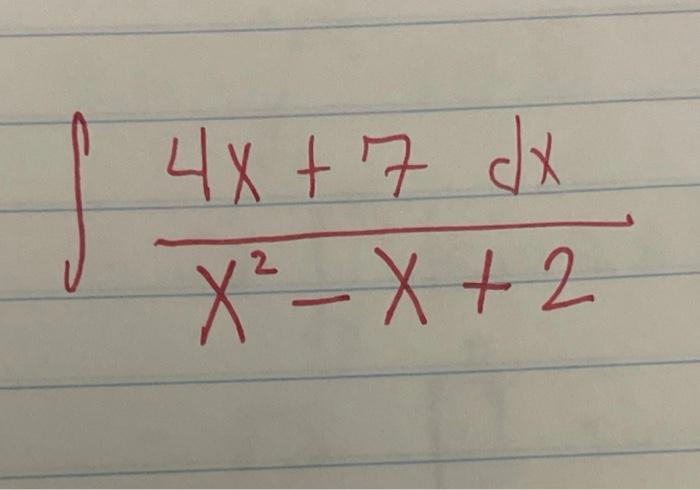 ∫ 4x + 7 dx
x² - x + 2